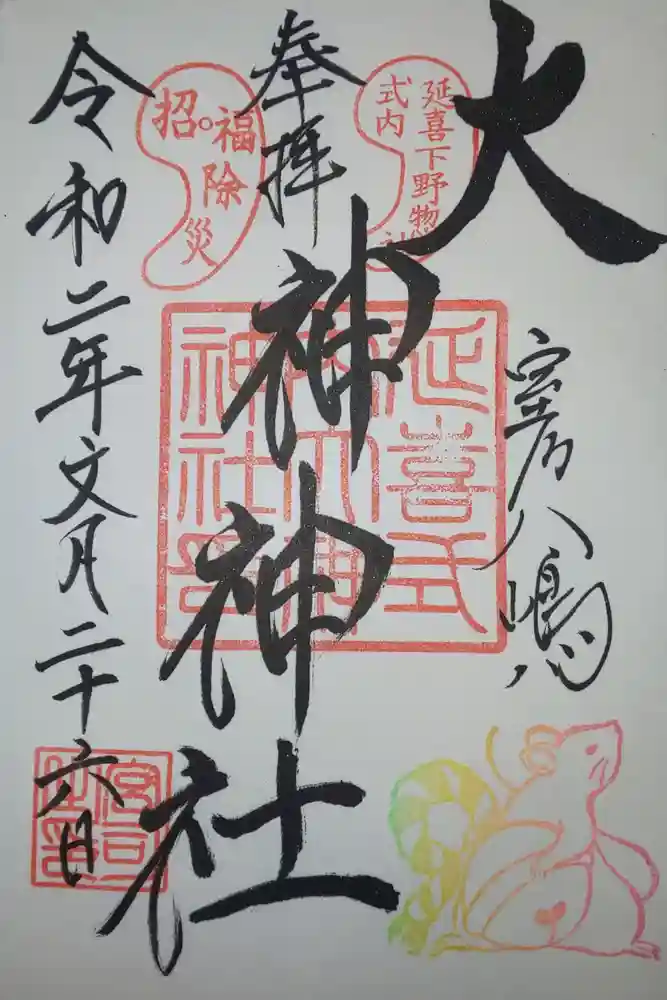 大神神社
室乃八嶋
奉拝
令和二年文月二十六日
延喜式内
下野惣社
招福除災
延喜式
内大神
神社印
宮司
之印